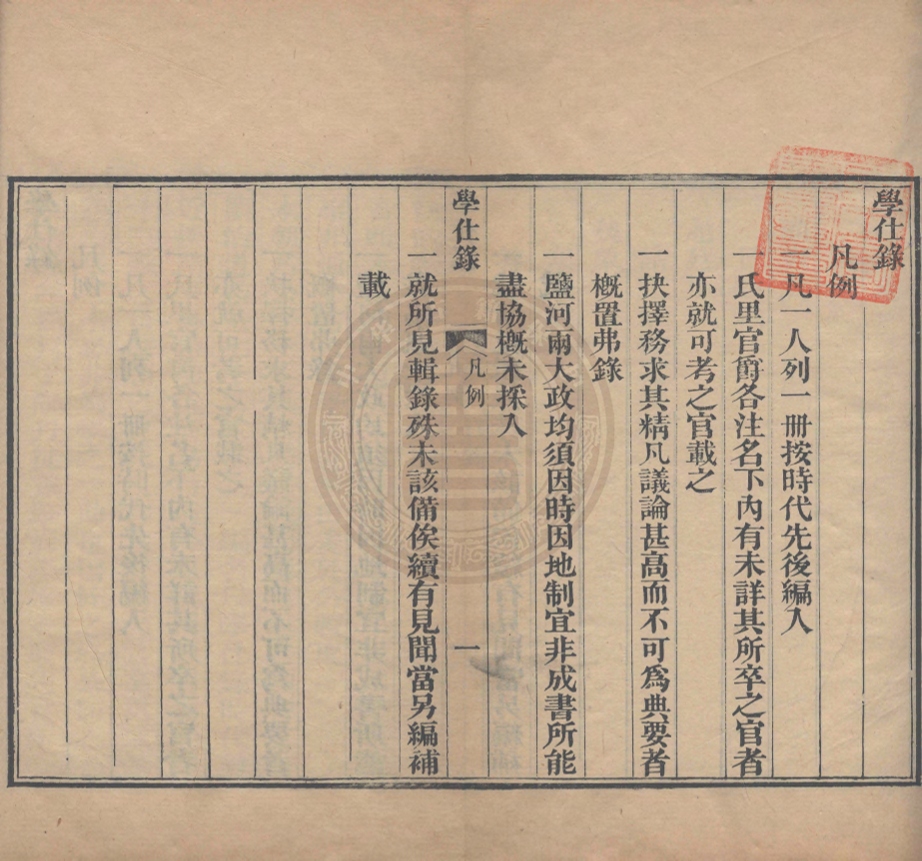 學仕錄
凡例
一凡一人列一册按時代先後編入
一氏里官爵各注名下內有未詳其所卒之官者
亦就可考之官載之
一抉擇務求其精凡議論甚高而不可爲典要者
概置弗錄
一鹽河兩大政均須因時因地制宜非成書所能
盡協概未採入
學仕錄 凡例 一
一就所見輯錄殊未該備俟續有見聞當另編補
載